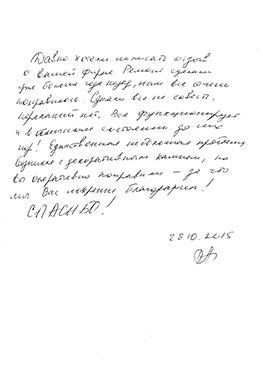 Давно хотели написать отзыв
о вашей фирме. Ремонт сделали
уже больше года назад, нам все очень
понравилось. Сделали все на совесть.
Нареканий нет. Все функционирует
и в отличном состоянии до сих
пор! Единственная небольшая проблема
возникла с декоративным камнем, но
вы оперативно поправили – за что
мы Вас искренне благодарим!
СПАСИБО!
28.10.2015